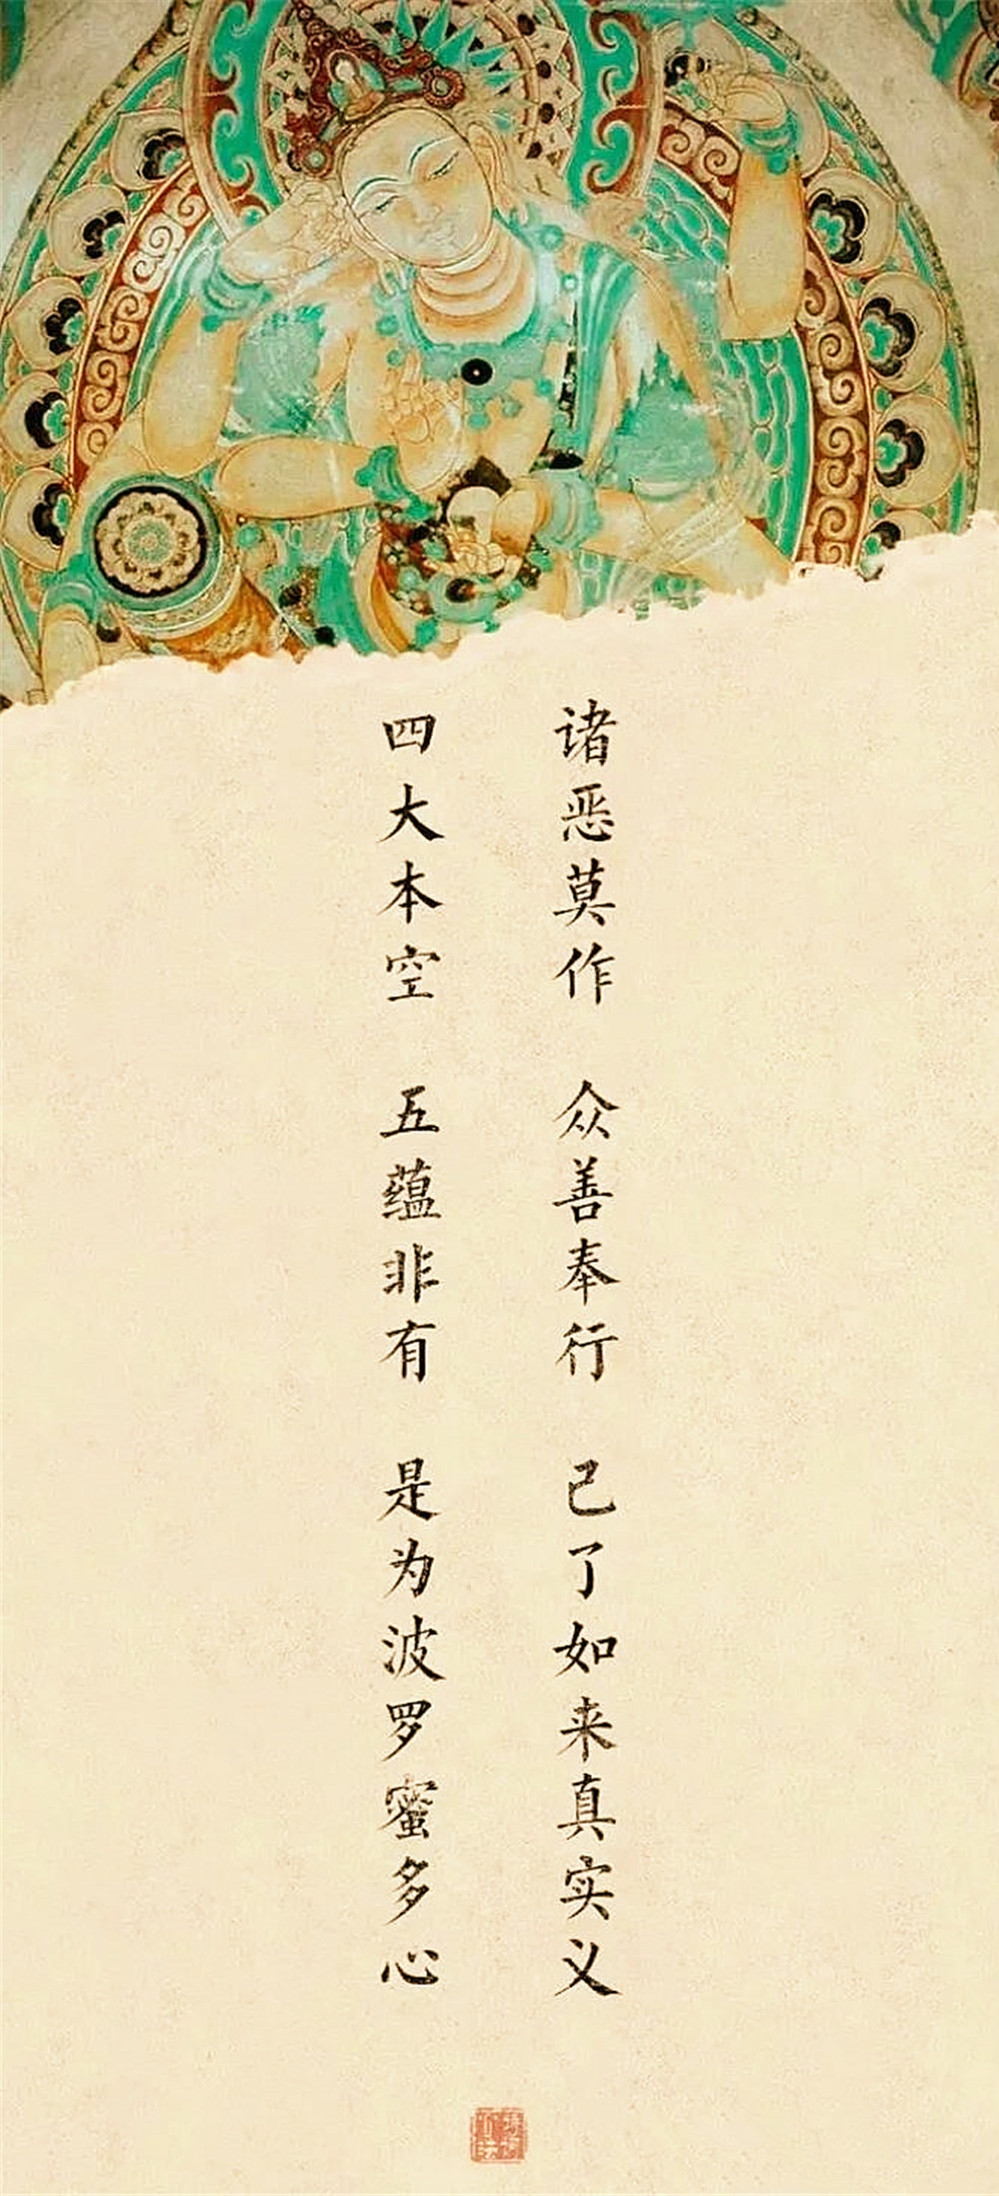 诸恶莫作 众善奉行 己了如来真实义
四大本空 五蕴非有 是为波罗蜜多心